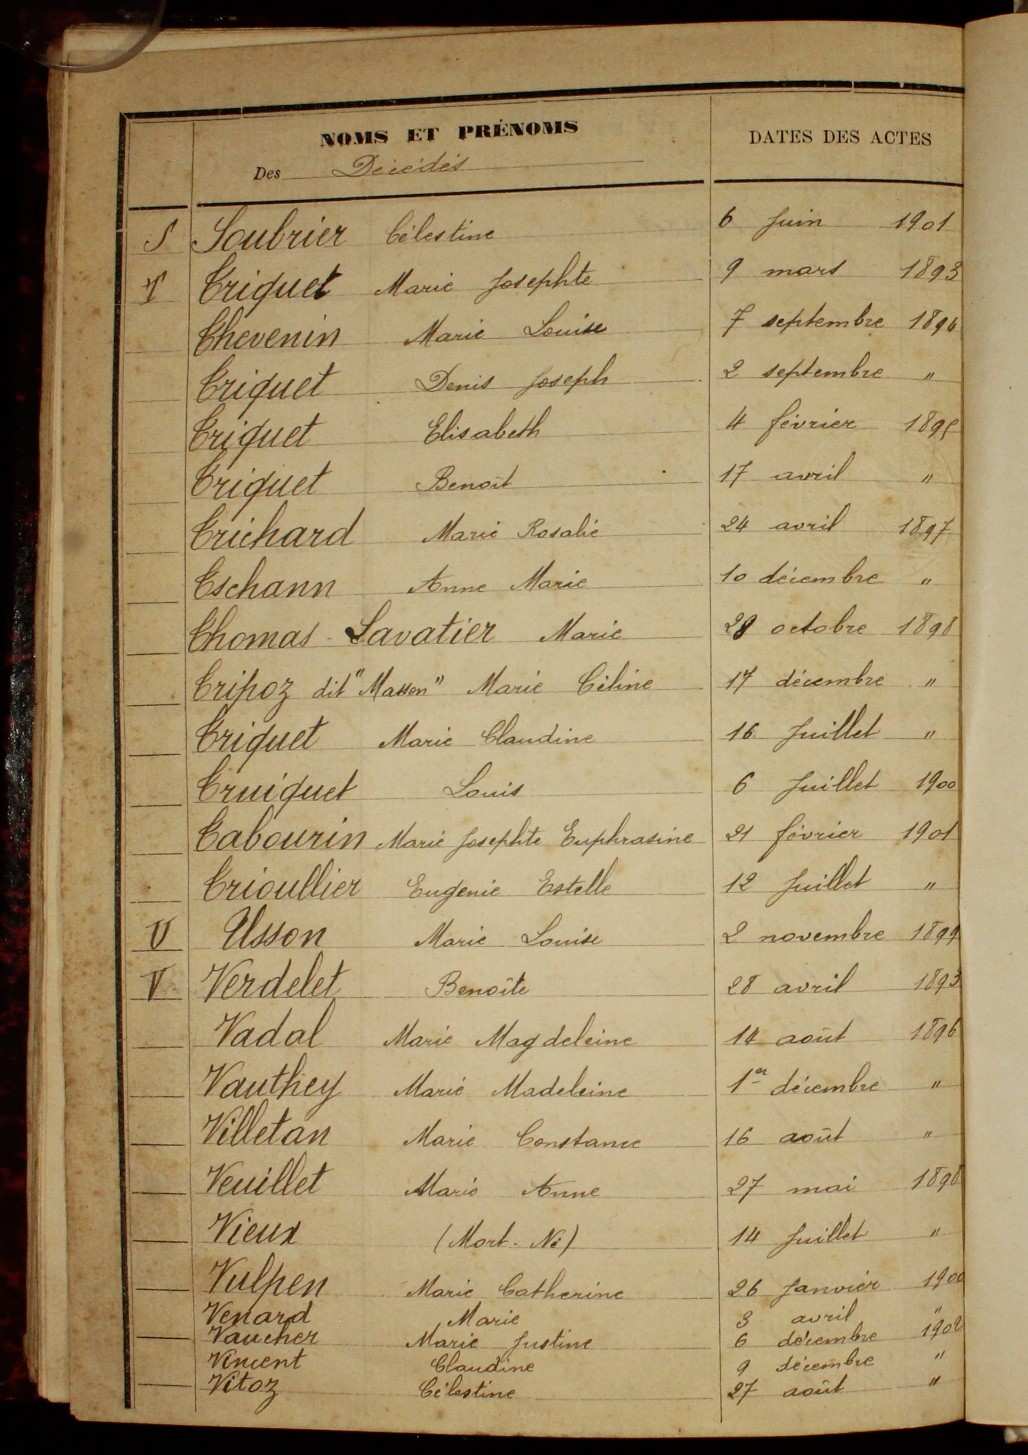 NOMS ET PRÉNOMS DATES DES ACTES
Des Décédés
S Soubrier Célestine 6 Juin 1901
T Triquet Marie Josephte 9 mars 1893
Thevenin Marie Louise 7 septembre 1894
Triquet Denis Joseph 2 septembre "
Triquet Elisabeth 4 février 1895
Triquet Benoit 17 avril "
Trichard Marie Rosalie 24 avril 1897
Tschann Anne Marie 10 décembre "
Thomas - Savatier Marie 28 octobre 1898
Tripoz dit "Masson" Marie Céline 17 décembre "
Triquet Marie Claudine 16 Juillet "
Truiquet Louis 6 Juillet 1900
Tabourin Marie Josephte Euphrasine 21 février 1901
Trioullier Eugenie Estelle 12 Juillet "
U Usson Marie Louise 2 novembre 1899
V Verdelet Benoîte 28 avril 1893
Vadal Marie Magdeleine 14 août 1896
Vauthey Marie Madeleine 1er décembre "
Villetan Marie Constance 16 août "
Veuillet Marie Anne 27 mai 1898
Vieux (Mort-Né) 14 Juillet "
Vulpen Marie Catherine 26 Janvier 1900
Venard Marie 3 avril "
Vaucher Marie Justine 6 décembre 1902
Vincent Claudine 9 décembre "
Vitoz Célestine 27 août "